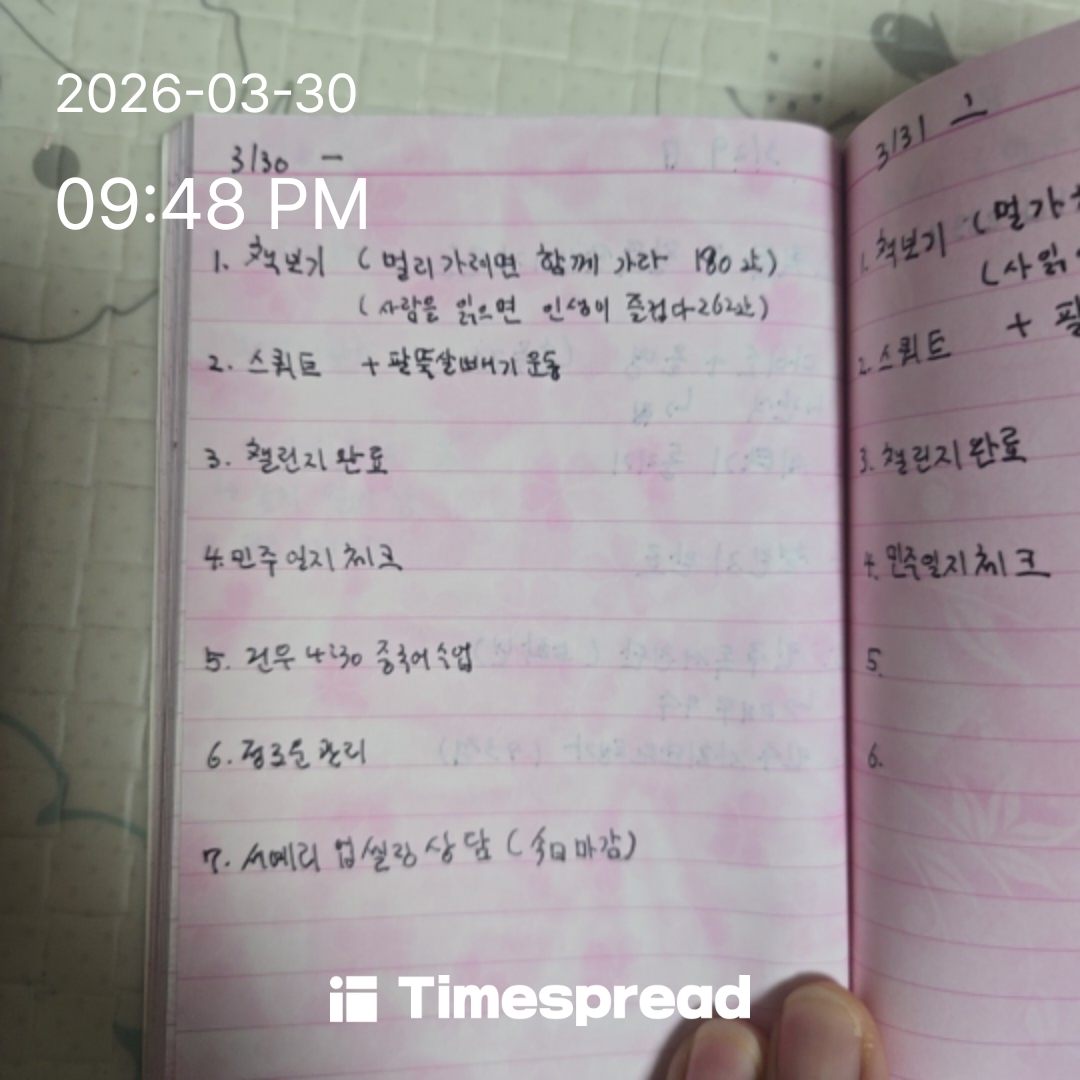 2026-03-30
09:48 PM
3/30 一
1. 책보기 (멀리가려면 함께 가라 180쪽)
(사람을 읽으면 인생이 즐겁다-262쪽)
2. 스쿼트 + 팔뚝살빼기 운동
3. 챌린지 완료
4. 민주일지 체크
5. 건우 4:30 중국어수업
6. 정조문 관리
7. 서예리 업셀링 상담 (今日 마감)
3/31
1. 책보기 (멀가
(사읽
2. 스쿼트 + 팔
3. 챌린지 완료
4. 민주일지 체크
5.
6.
Timespread